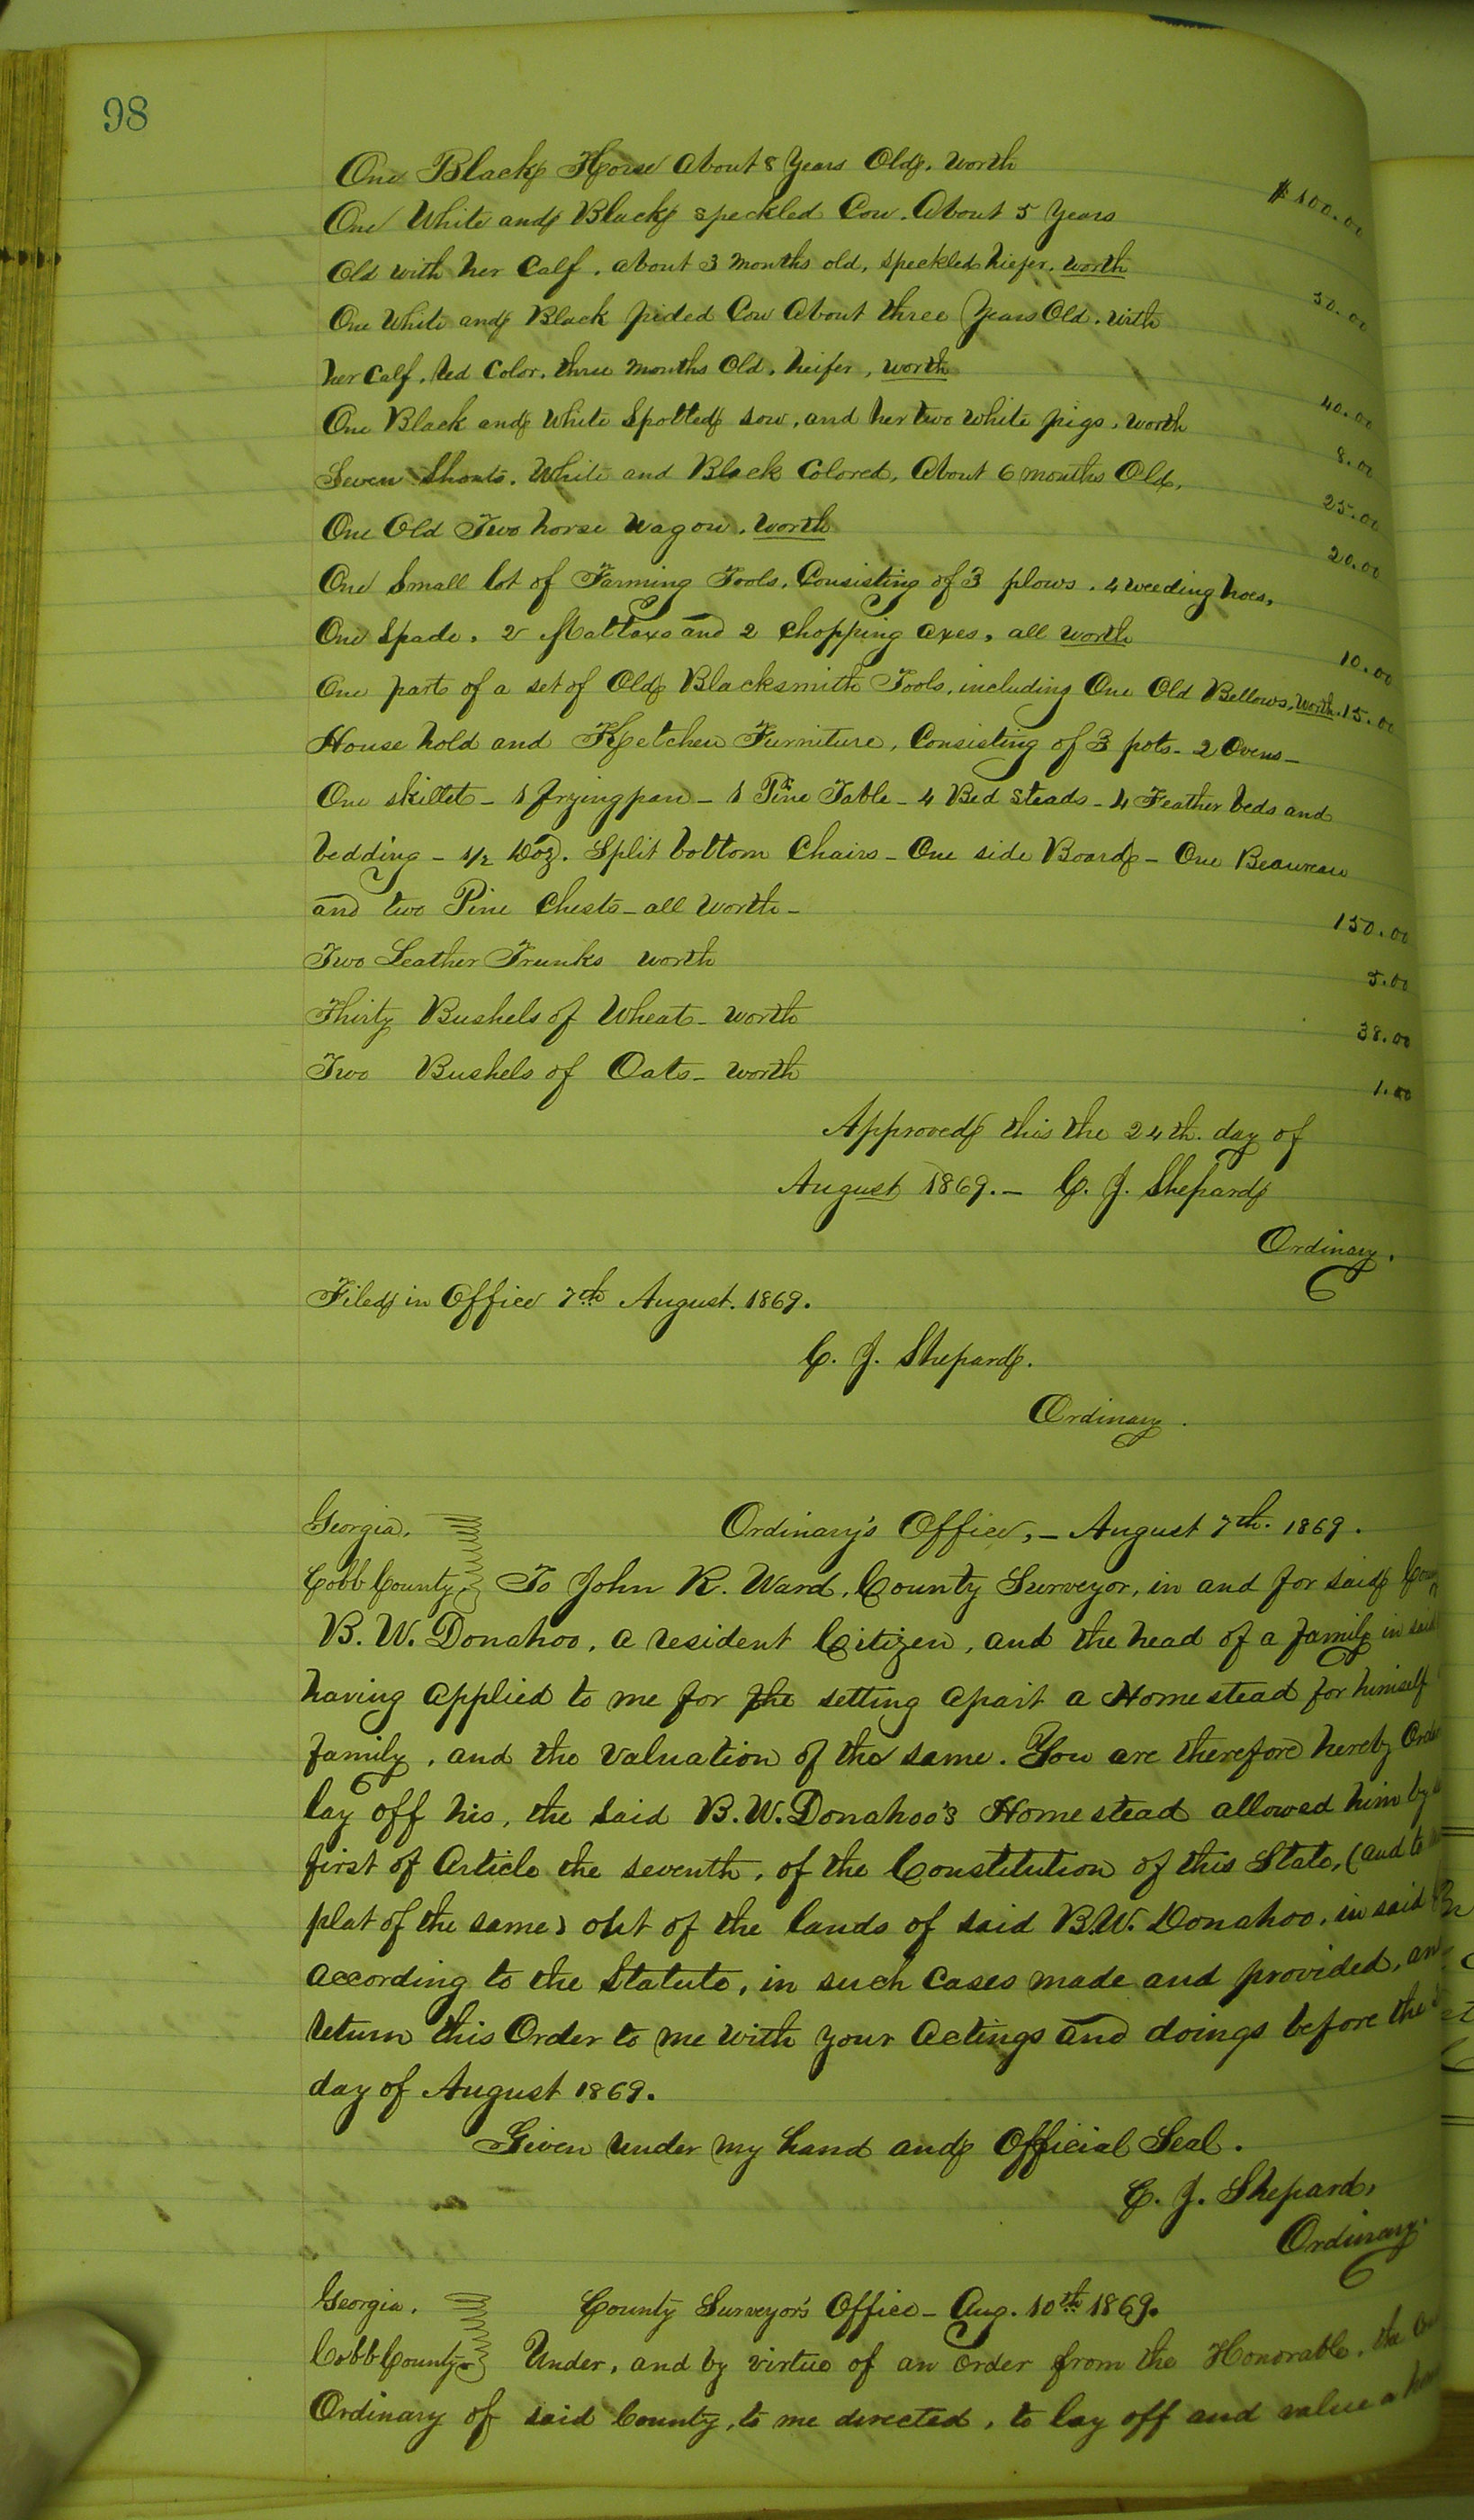 98
One Black Horse About 8 Years Old. worth $100.00
One White and Black speckled Cow. About 5 Years
Old with her Calf. about 3 months old, speckled hiefer. worth 50.00
One White and Black pided Cow About three Years Old. with
her Calf. Red Color. three months Old. heifer, worth 40.00
One Black and White Spotted sow, and her two white pigs. worth 8.00
Seven Shoats. White and Black Colored, About 6 months Old. 25.00
One Old Two horse Wagon. worth 20.00
One Small lot of Farming Tools. Consisting of 3 plows. 4 weeding hoes,
One Spade. 2 Mattaxs and 2 Chopping axes, all worth 10.00
One part of a set of Old Blacksmith Tools, including One Old Bellows, worth. 15.00
House hold and Ketchen Furniture, Consisting of 3 pots - 2 Ovens -
One skillet - 1 frying pan - 1 Pine Table - 4 Bed Steads - 4 Feather beds and
bedding - 1/2 Doz. Split bottom Chairs - One side Board - One Beaureau
and two Pine Chests - all worth - 150.00
Two Leather Trunks worth 5.00
Thirty Bushels of Wheat - worth 38.00
Two Bushels of Oats - worth 1.00
Approved this the 24th. day of
August 1869. - C. J. Shepard
Ordinary.
Filed in Office 7th August. 1869.
C. J. Shepard.
Ordinary.
Georgia. Ordinary's Office, - August 7th. 1869.
Cobb County. To John R. Ward, County Surveyor, in and for said
B. W. Donahoo, a resident Citizen, and the head of a family in said
having applied to me for the setting apart a Homestead for himself
family, and the valuation of the same. You are therefore hereby
lay off his, the said B. W. Donahoo's Homestead allowed him by
first of Article the seventh, of the Constitution of this State, (and to
plat of the same) out of the lands of said B.W. Donahoo, in said
according to the Statute, in such cases made and provided,
return this Order to me with your actings and doings before the
day of August 1869.
Given under my hand and Official Seal.
C. J. Shepard,
Ordinary.
Georgia. County Surveyor's Office - Aug. 10th 1869.
Cobb County. Under, and by virtue of an order from the Honorable, the
Ordinary of said County, to me directed, to lay off and value a